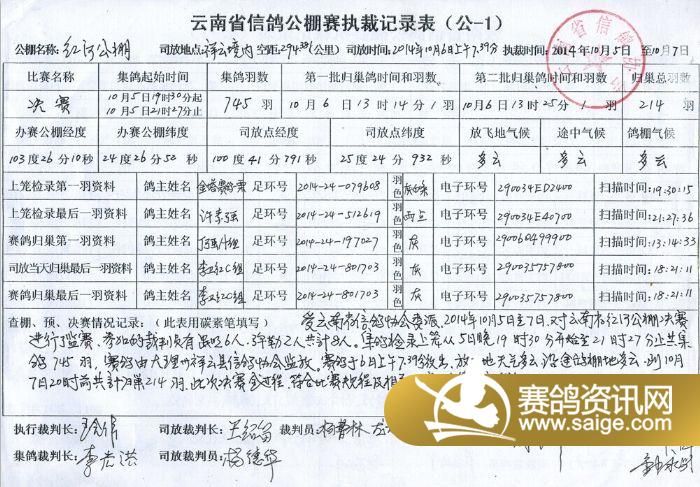 云南省信鸽公棚赛执裁记录表（公-1）
公棚名称：红河公棚 司放地点：祥云境内 空距：294.33(公里) 司放时间：2014年10月6日上午7.39分 执裁时间：2014年10月5日 至 10月7日
比赛名称 集鸽起始时间 集鸽羽数 第一批归巢鸽时间和羽数 第二批归巢鸽时间和羽数 归巢总羽数
决赛 10月5日19时30分起 10月5日21时27分止 745羽 10月6日13时14分1羽 10月6日13时25分1羽 214羽
办赛公棚经度 办赛公棚纬度 司放点经度 司放点纬度 放飞地气候 途中气候 鸽棚气候
103度26分10秒 24度26分50秒 100度41分791秒 25度24分932秒 多云 多云 多云
上笼检录第一羽资料 鸽主姓名 足环号 2014-24-079608 羽色 电子环号 290034ED2400 扫描时间：19:30:15
上笼检录最后一羽资料 鸽主姓名 许李强 足环号 2014-24-512619 羽色 雨点 电子环号 290034E40700 扫描时间：21:27:36
赛鸽归巢第一羽资料 鸽主姓名 足环号 2014-24-197027 羽色 灰 电子环号 290060499900 扫描时间：13:14:33
司放当天归巢最后一羽资料 鸽主姓名 李红C组 足环号 2014-24-801703 羽色 灰 电子环号 290035757800 扫描时间：18:21:11
赛鸽归巢最后一羽资料 鸽主姓名 李红C组 足环号 2014-24-801703 羽色 灰 电子环号 290035757800 扫描时间：18:21:11
查棚、预、决赛情况记录：（此表用碳素笔填写） 受云南省信鸽协会委派，2014年10月5日至7日，对云南省红河公棚决赛
进行监赛，参加的裁判员有 6人，2人共计8人。集鸽检录上笼从5日晚19时30分开始至21时27分止共集
鸽745羽，赛鸽由大理州祥云县信鸽协会监放。赛鸽于6日上午7.39分放出，放地天气多云，沿途鸽棚地多云，到10月
7日20时前共计归巢214羽，此次决赛全过程，符合比赛规程及相
执行裁判长： 司放裁判长： 裁判员：
集鸽裁判长： 司放裁判员：杨德华
赛鸽资讯网
www.saige.com